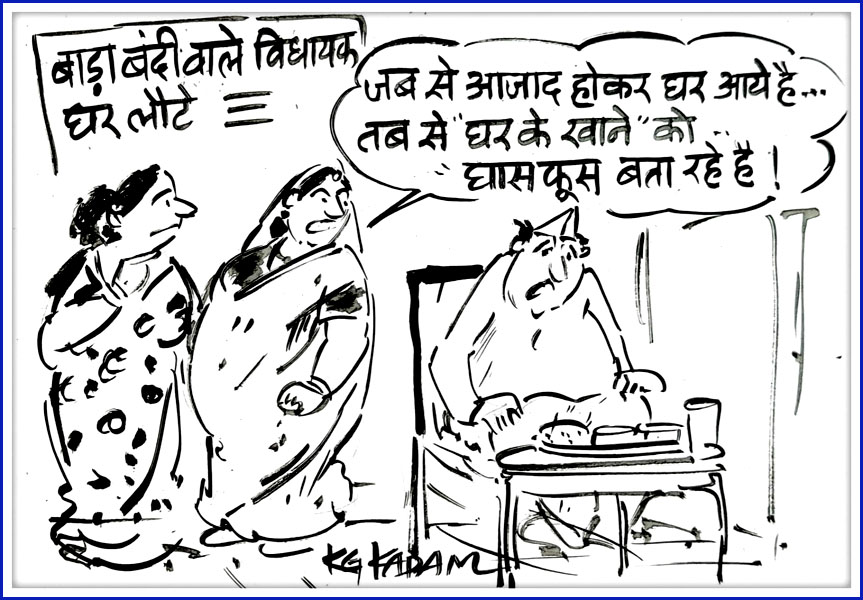 बाड़ा बंदी वाले विधायक
घर लौटे
जब से आजाद होकर घर आये है...
तब से "घर के खाने" को ..
घासफूस बता रहे है !
KG KADAM